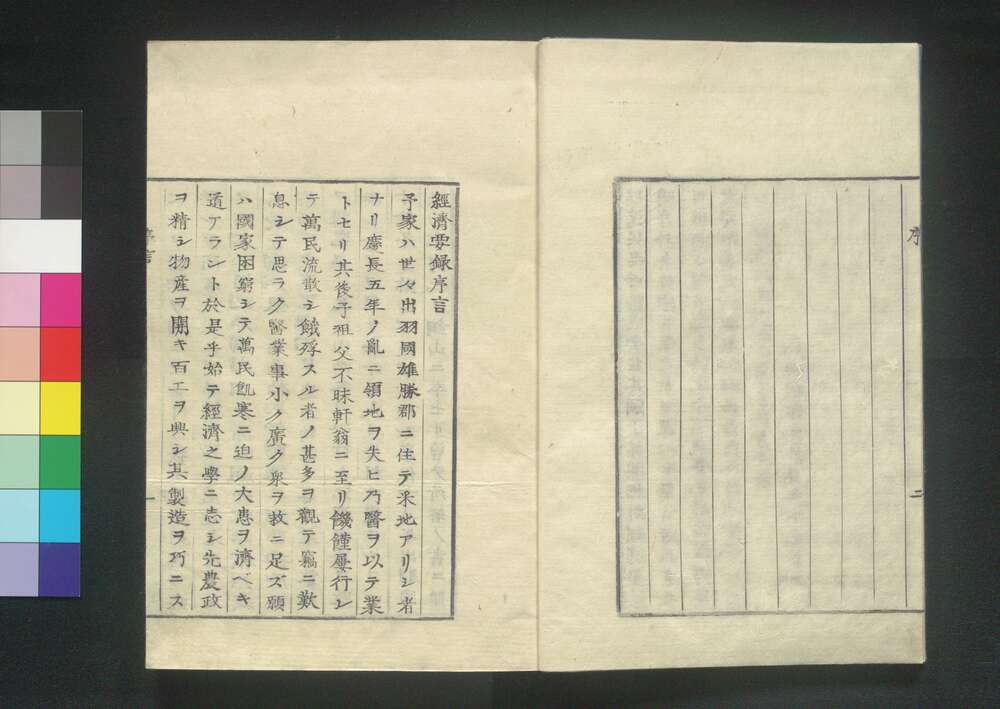 序
二
經濟要錄序言
予家ハ世々出羽國雄勝郡ニ住テ釆地アリシ者
ナリ慶長五年ノ亂ニ領地ヲ失ヒ乃醫ヲ以テ業
トセリ其後予祖父不昧軒翁ニ至リ饑饉屢行レ
テ萬民流散シ餓殍スル者ノ甚多ヲ觀テ竊ニ歎
息シテ思ラク醫業事小ク廣ク衆ヲ救ニ足ズ願
ハ國家困窮シテ萬民飢寒ニ迫ノ大患ヲ濟ベキ
道アラント於是乎始テ經濟之學ニ志シ先農政
ヲ精シ物産ヲ開キ百工ヲ興シ其製造ヲ巧ニス
序言
一